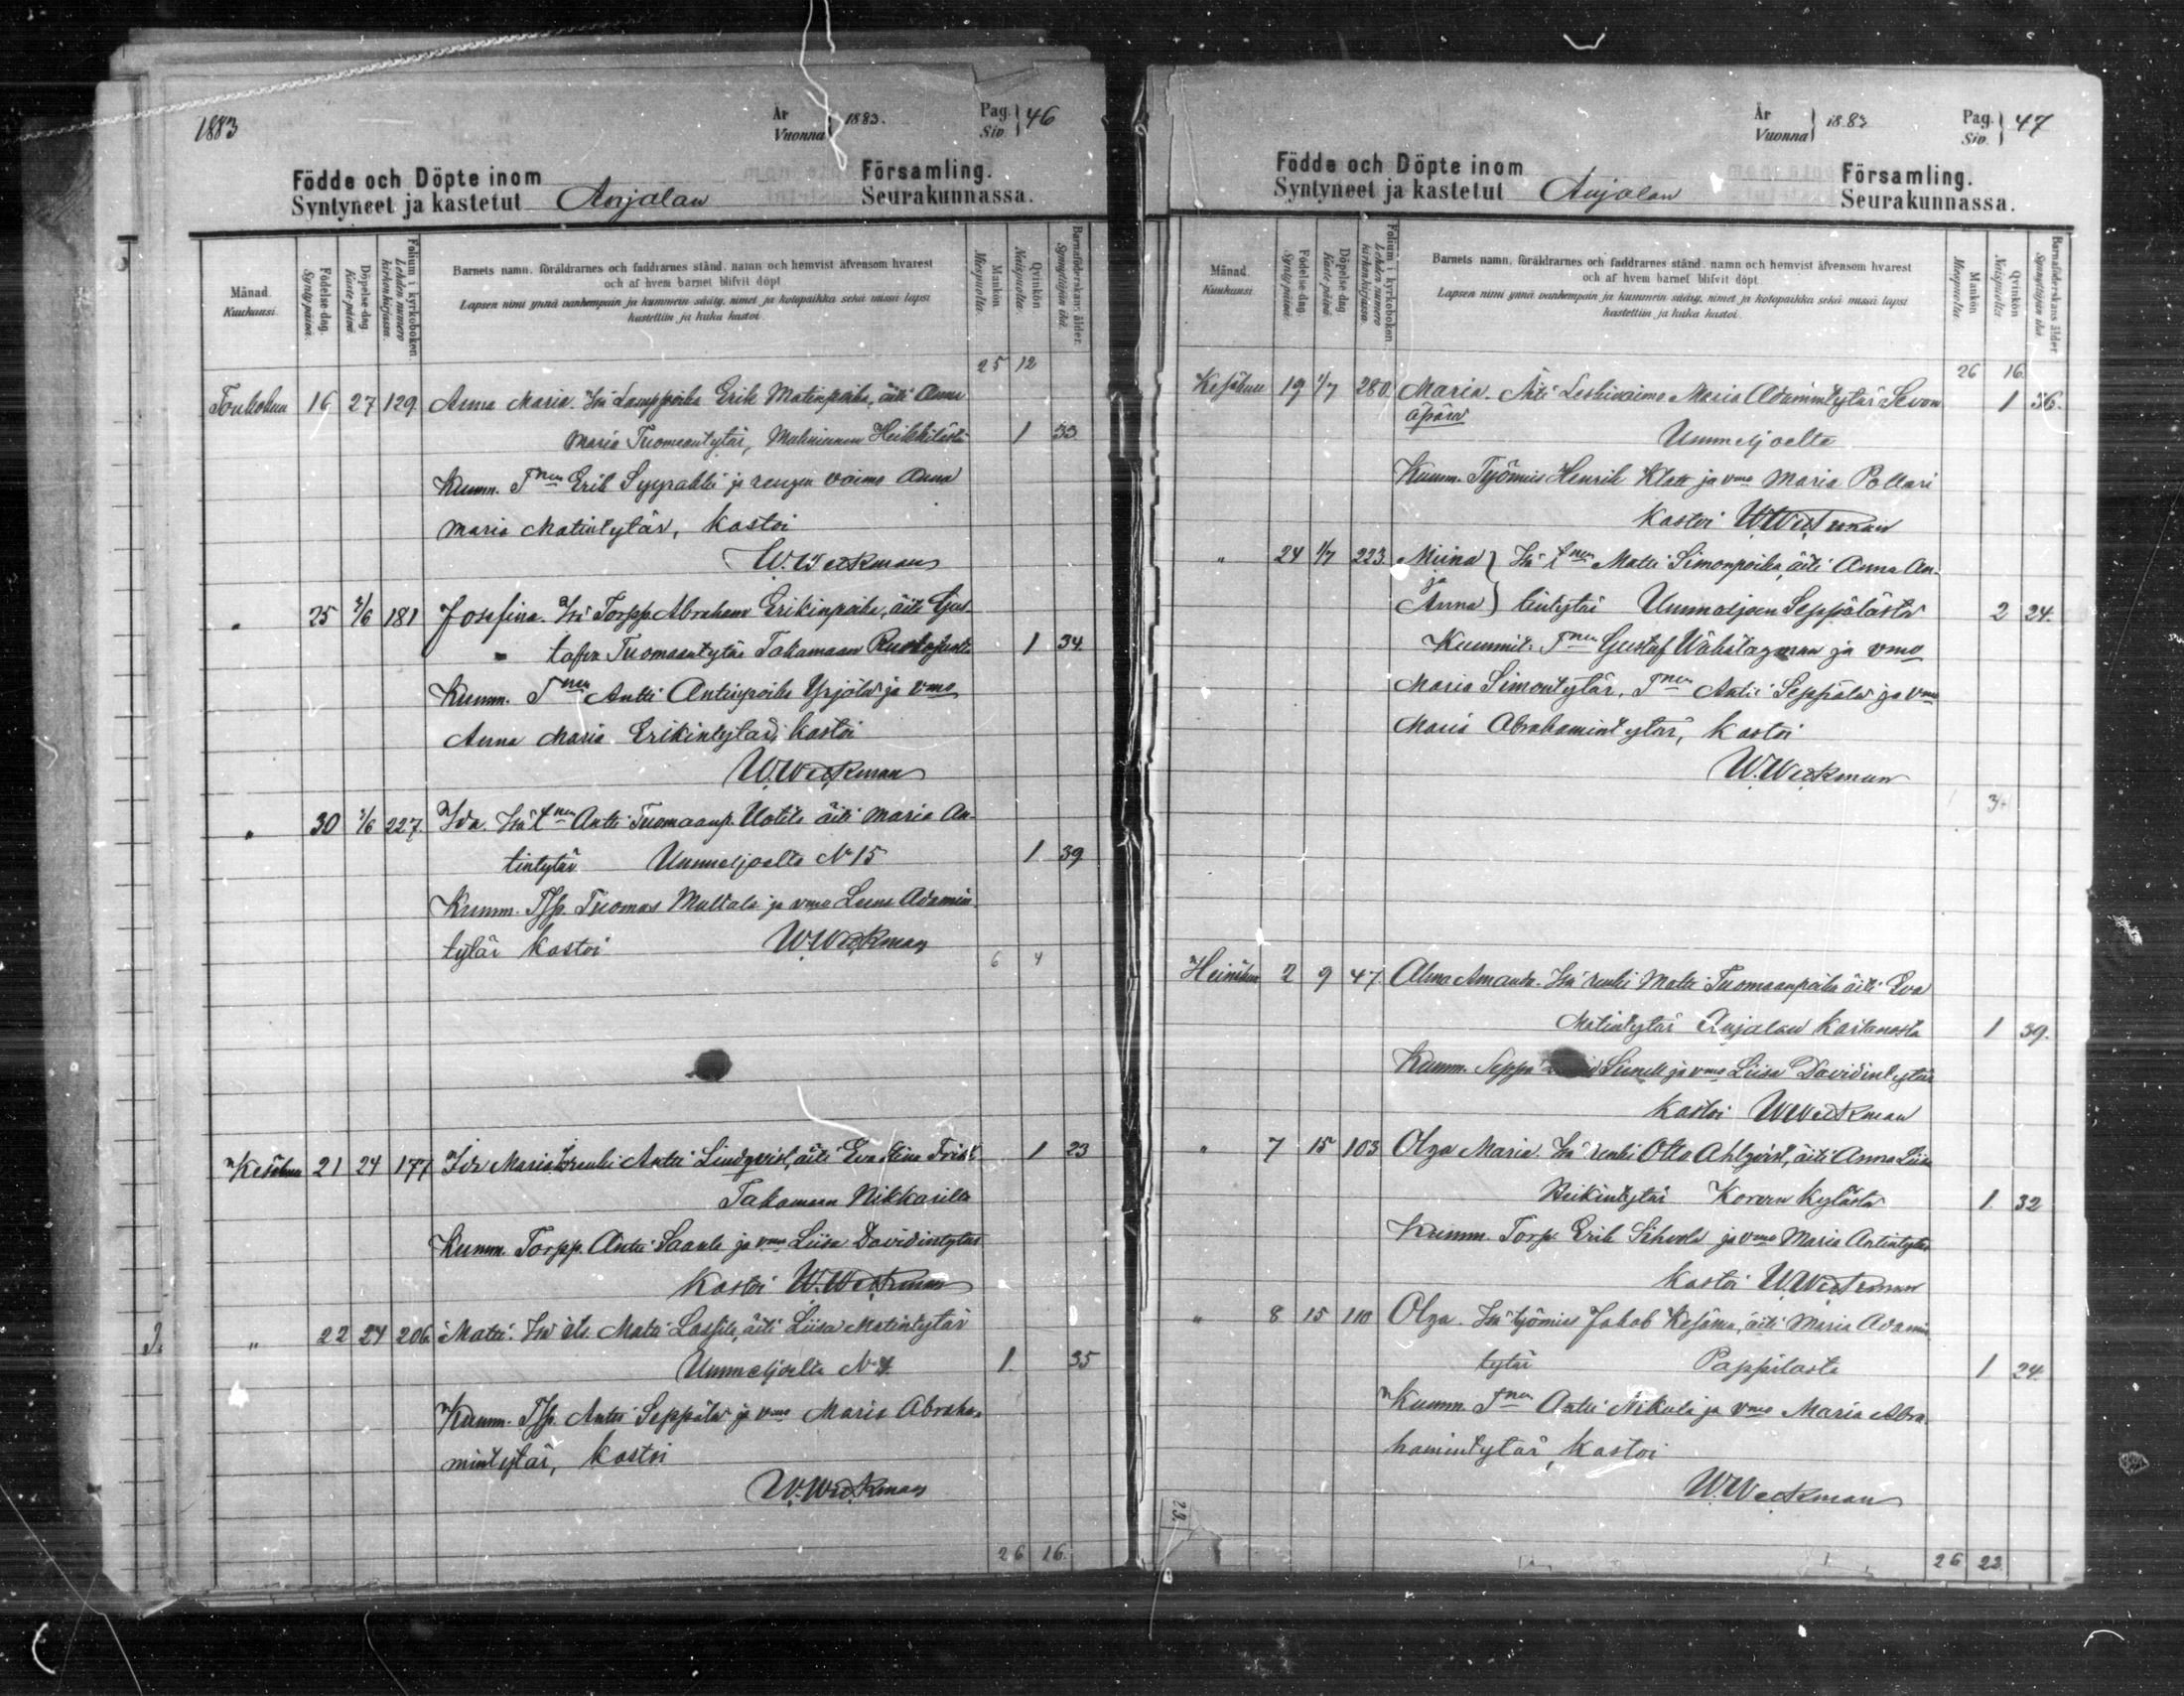 1883
År Vuonna 1883.
Pag. Siv. 46
Födde och Döpte inom
Syntyneet ja kastetut Anjalan
Församling.
Seurakunnassa.
Månad Kuukausi
Födelse-dag. Syntypäivä.
Döpelse-dag. Kastepäivä.
Folium i kyrkoboken. Lehden numero kirkonkirjassa.
Barnets namn, föräldrarnes och faddrarnes stånd, namn och hemvist äfvensom hvarest
och af hvem barnet blifvit döpt
Lapsen nimi ynnä vanhempain ja kummein sääty, nimet ja kotopaikka sekä missä lapsi
kastettiin ja kuka kastoi.
Mankön Miespuolta.
Qvinkön Naispuolta.
Barnaföderskans ålder. Synnyttäjän ikä.
25 12
Toukokuu 16 27 129. Anna Maria. Isä Lamppoika Erik Matinpoika, äiti Anna
Maria Tuomaantytär, Heikkilästä 1 33
Kumm. Tnen Erik Sypräkki ja rengin vaimo Anna
Maria Matintytär, kastoi
W. Weckman
" 25 3/6 181 Josefina. Isä Torpp. Abraham Erikinpoika, äiti Gus-
tafva Tuomaantytär Takamaan 1 34
Kumm. Tnen Antti Antinpoika Yrjölä ja vmo
Anna Maria Erikintytär, kastoi
W. Weckman
" 30 3/6 227. Ida. Isä tnen Antti Tuomaanp. Uotila äiti Maria An-
tintytär Ummeljoelta No 15 1 39
Kumm. Tss. Tuomas Mattala ja vmo Leena Adamin
tytär kastoi W. Weckman
6 4
Kesäkuu 21 24 177 Ida Maria. Isä renki Antti Lindqvist, äiti Eva Stina Frisk 1 23
Takamaan Nikkarilta
Kumm. Torpp. Antti Saarela ja vmo Liisa Davidintytär
Kastoi W. Weckman
" 22 24 206. Matti. Isä its. Matti Lassila, äiti Liisa Matintytär
Ummeljoelta No 1. 35
Kumm. Tss. Antti Seppälä ja vmo Maria Abraha-
mintytär, kastoi
W. Weckman
26 16.
År Vuonna 1883
Pag. Siv. 47
Födde och Döpte inom
Syntyneet ja kastetut Anjalan
Församling.
Seurakunnassa.
Månad. Kuukausi
Födelse-dag. Syntypäivä.
Döpelse-dag. Kastepäivä.
Folium i kyrkoboken. Lehden numero kirkonkirjassa.
Barnets namn, föräldrarnes och faddrarnes stånd, namn och hemvist äfvensom hvarest
och af hvem barnet blifvit döpt.
Lapsen nimi ynnä vanhempain ja kummein sääty, nimet ja kotopaikka sekä missä lapsi
kastettiin ja kuka kastoi.
Mankön Miespuolta.
Qvinkön Naispuolta.
Barnaföderskans ålder Synnyttäjän ikä.
26 16.
Kesäkuu 19 1/7 280. Maria. Äiti Leskivaimo Maria Adamintytär Sevon 1 36.
äpärä
Ummeljoelta
Kumm. Työmies Henrik Klatt ja vmo Maria Pollari
Kastoi W. Weckman
" 24 1/7 223. Miina Isä tnen Matti Simonpoika, äiti Anna An-
ja
Anna tintytär Ummeljoen Seppälästä 2 24.
Kummit: Tnen Gustaf Wähätagman ja vmo
Maria Simontytär, Tnen Antti Seppälä ja vmo
Maria Abrahamintytär, kastoi
W. Weckman
Heinäkuu 2 9 47. Alma Amanda. Isä renki Matti Tuomaanpoika äiti Eva
Matintytär Anjalan Kartanosta 1 39.
Kumm. Seppä ja vmo Liisa Davidintytär
Kastoi W. Weckman
" 7 15 103 Olga Maria. Isä renki Otto Ahlqvist, äiti Anna Liisa
Heikintytär Korven kylästä 1. 32
Kumm. Torp. Erik Sihvola ja vmo Maria Antintytär
kastoi W. Weckman
" 8 15 110 Olga. Isä työmies Jakob Kesämä, äiti Maria Adamin
tytär Pappilasta 1 24.
Kumm. Tnen Antti Nikula ja vmo Maria Abra
hamintytär, kastoi
W. Weckman
26 22.